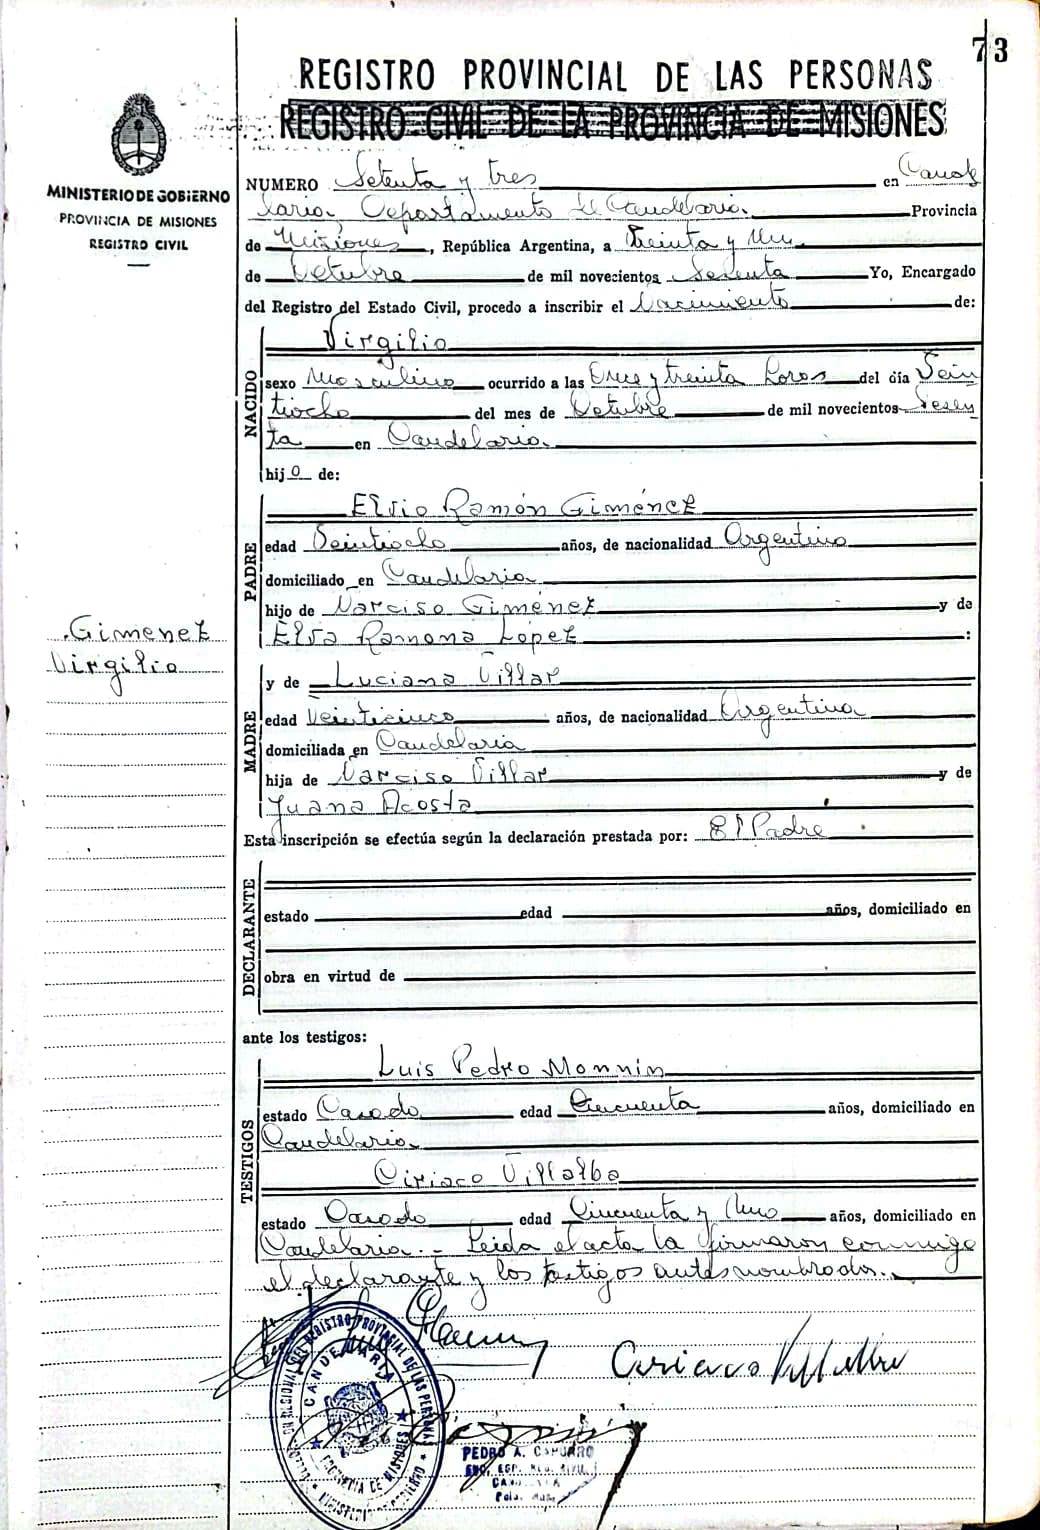 73
REGISTRO PROVINCIAL DE LAS PERSONAS
REGISTRO CIVIL DE LA PROVINCIA DE MISIONES
MINISTERIO DE GOBIERNO
PROVINCIA DE MISIONES
REGISTRO CIVIL
NUMERO Setenta y tres en Cande
laria, Departamento de Candelaria. Provincia
de Misiones, República Argentina, a Treinta y Un
de Octubre de mil novecientos Sesenta Yo, Encargado
del Registro del Estado Civil, procedo a inscribir el Nacimiento de:
NACIDO
Virgilio
sexo Masculino ocurrido a las Once y treinta horas del día Vein
tiocho del mes de Octubre de mil novecientos Sesen
ta en Candelaria
hijo de:
PADRE
Elvio Ramón Giménez
edad Veintiocho años, de nacionalidad Argentino
domiciliado en Candelaria
hijo de Narciso Giménez y de
Elva Ramona López :
Gimenez
Virgilio
MADRE
y de Luciana Villar
edad Veinticinco años, de nacionalidad Argentina
domiciliada en Candelaria
hija de Narciso Villar y de
Juana Acosta
Esta inscripción se efectúa según la declaración prestada por: El Padre
DECLARANTE
estado edad años, domiciliado en
obra en virtud de
ante los testigos:
TESTIGOS
Luis Pedro Monnin
estado Casado edad Cincuenta años, domiciliado en
Candelaria
Ciriaco Villalba
estado Casado edad Cincuenta y Uno años, domiciliado en
Candelaria.- Leida el acta la firmaron conmigo
el declarante y los testigos antes nombrados.
Ciriaco Villalba
CANDELARIA
PROVINCIA DE MISIONES
MINISTERIO DE GOBIERNO
PEDRO A. CAPURRO